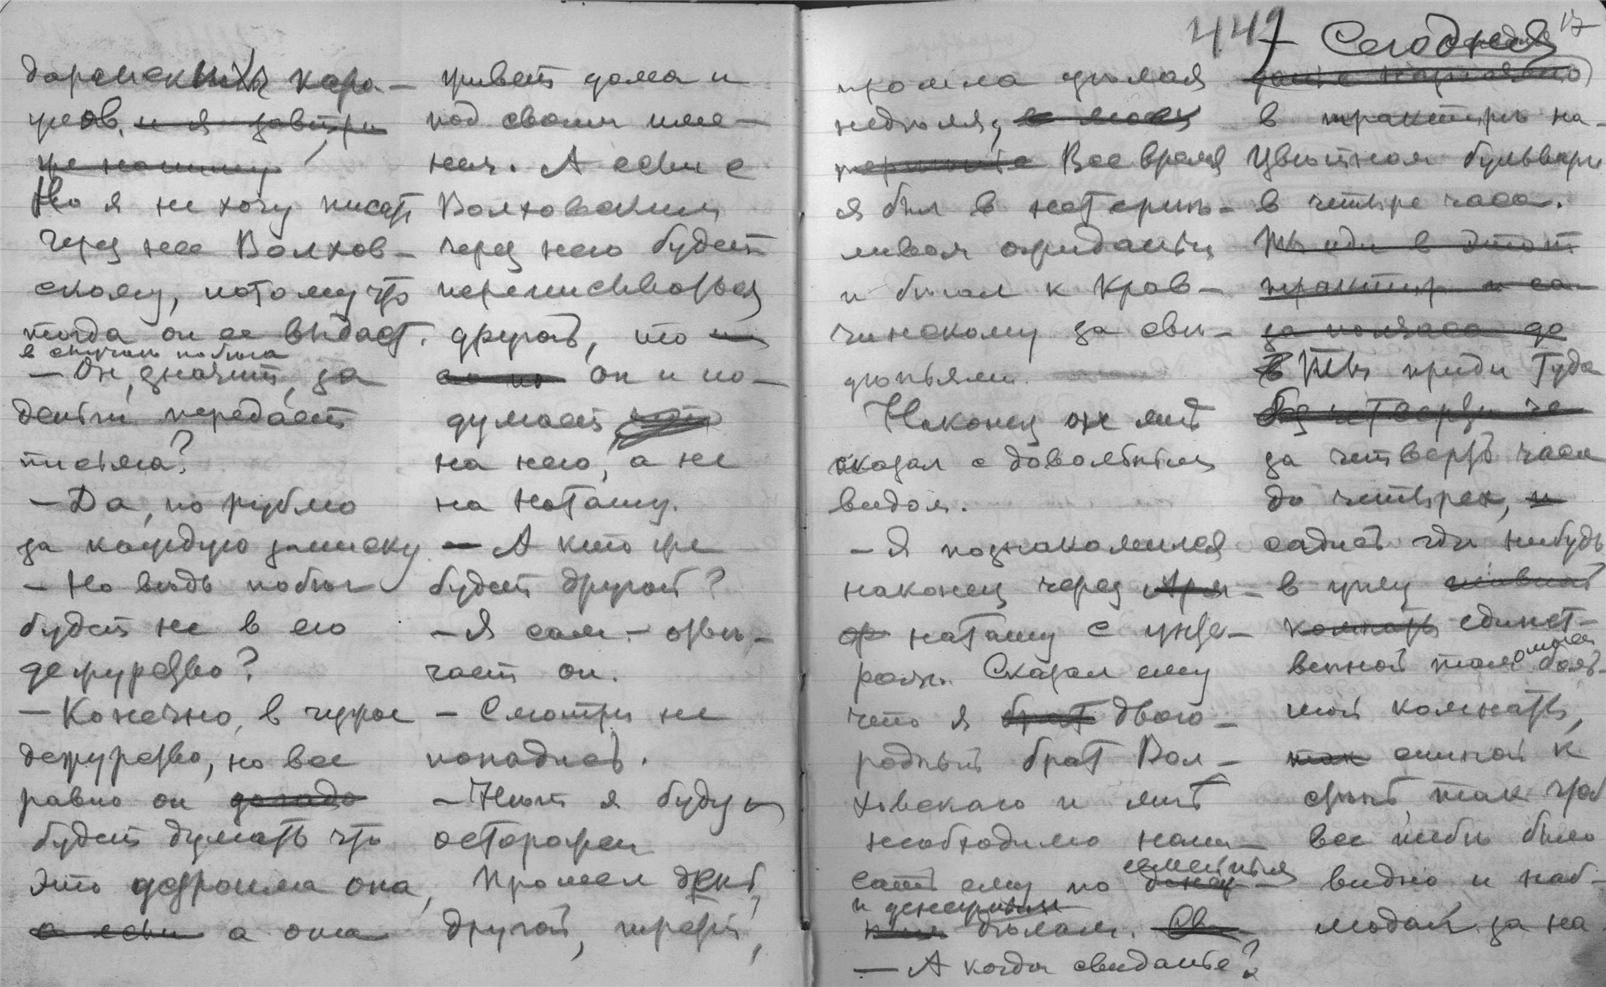 дармскихъ кара-
улов, и я завтра
же напишу
Но я не хочу писать
Через нее Волхов-
скому, потому что
тогда он ее выдаст.
в случаѣ побѣга
— Он, значит, за
деньги передает
письма?
— Да, по рублю
за каждую записку
— Но вѣдь побѣг
будет не в его
дежурство?
— Конечно, в чужое
дежурство, но все
равно он догада
будет думать что
это устроила она,
а если а она
живет дома и
под своим име-
нем. А если с
Волховским
через него будет
переписываться
другой, то и
он и по-
думает что
на него, а не
на Наташу.
— А кто же
будет другой?
— Я сам — отвѣ-
чает он.
— Смотри не
попадись.
— Нѣт я буду
осторожен
Прошел день,
другой, третій,
447 17
прошла цѣлая
недѣля, в моем
Все время
я был в нетерпѣ-
ливом ожиданьи
и бѣгал к Кров-
чинскому за свѣ-
дѣньями.
Наконец он мнѣ
сказал с довольным
видом.
— Я познакомился
наконец через
Наташу с унте-
ром. Сказал ему
что я брат двою-
родный брат Вол-
ховскаго и мнѣ
необходимо напи-
сать ему по семейным
и денежным
дѣлам. Св
— А когда свиданье?
Сегодня
в трактирѣ на
Цвѣтном бульварѣ
в четыре часа.
Ты иди в этот
трактир и са-
за полчаса до
Ты приди туда
без четверти че
за четверть часа
до четырех, и
садись гдѣ нибудь
в углу
комнаты единст-
венной там боль-
шой комнаты,
так спиной к
стѣнѣ так чтоб
все тебѣ было
видно и наб-
людай за на